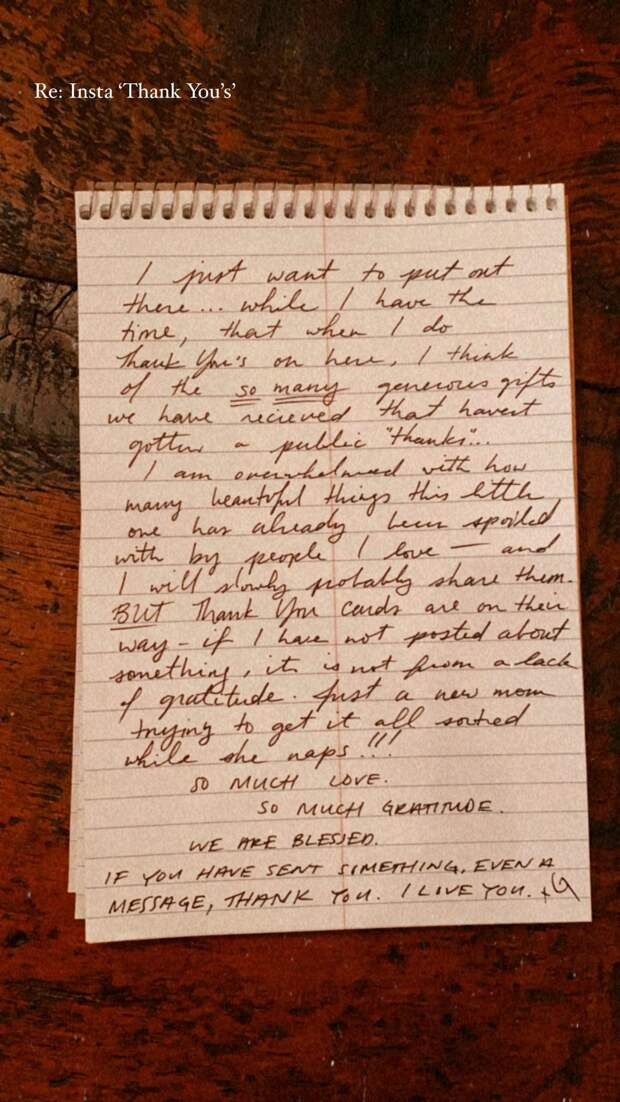 Re: Insta ‘Thank You’s’
I just want to put out
there... while I have the
time, that when I do
Thank You's on here, I think
of the so many generous gifts
we have recieved that havent
gotten a public "thanks"...
I am overwhelmed with how
many beautiful things this little
one has already been spoiled
with by people I love — and
I will slowly probably share them.
BUT Thank You cards are on their
way - if I have not posted about
something, it is not from a lack
of gratitude. Just a new mom
trying to get it all sorted
while she naps!!!
SO MUCH LOVE.
SO MUCH GRATITUDE.
WE ARE BLESSED.
IF YOU HAVE SENT SOMETHING, EVEN A
MESSAGE, THANK YOU. I LOVE YOU. +G